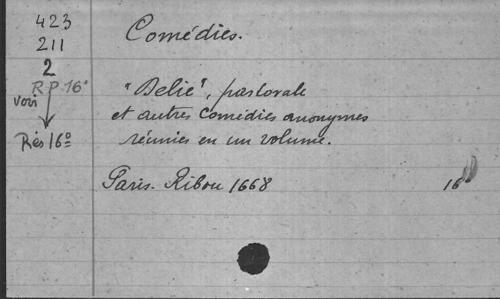 423
211
2
R.P. 16°
voir
Rés 16°
Comédies.
"Delie", pastorale
et autres comédies anonymes
réunies en un volume.
Paris. Ribou 1668 16°